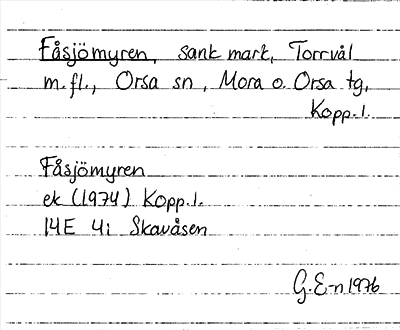 Fåsjömyren, sank mark, Torrvål
m.fl., Orsa sn, Mora o. Orsa tg,
Kopp. l.
Fåsjömyren
ek (1974) Kopp. l.
14E 4i Skavåsen
G. E-n 1976